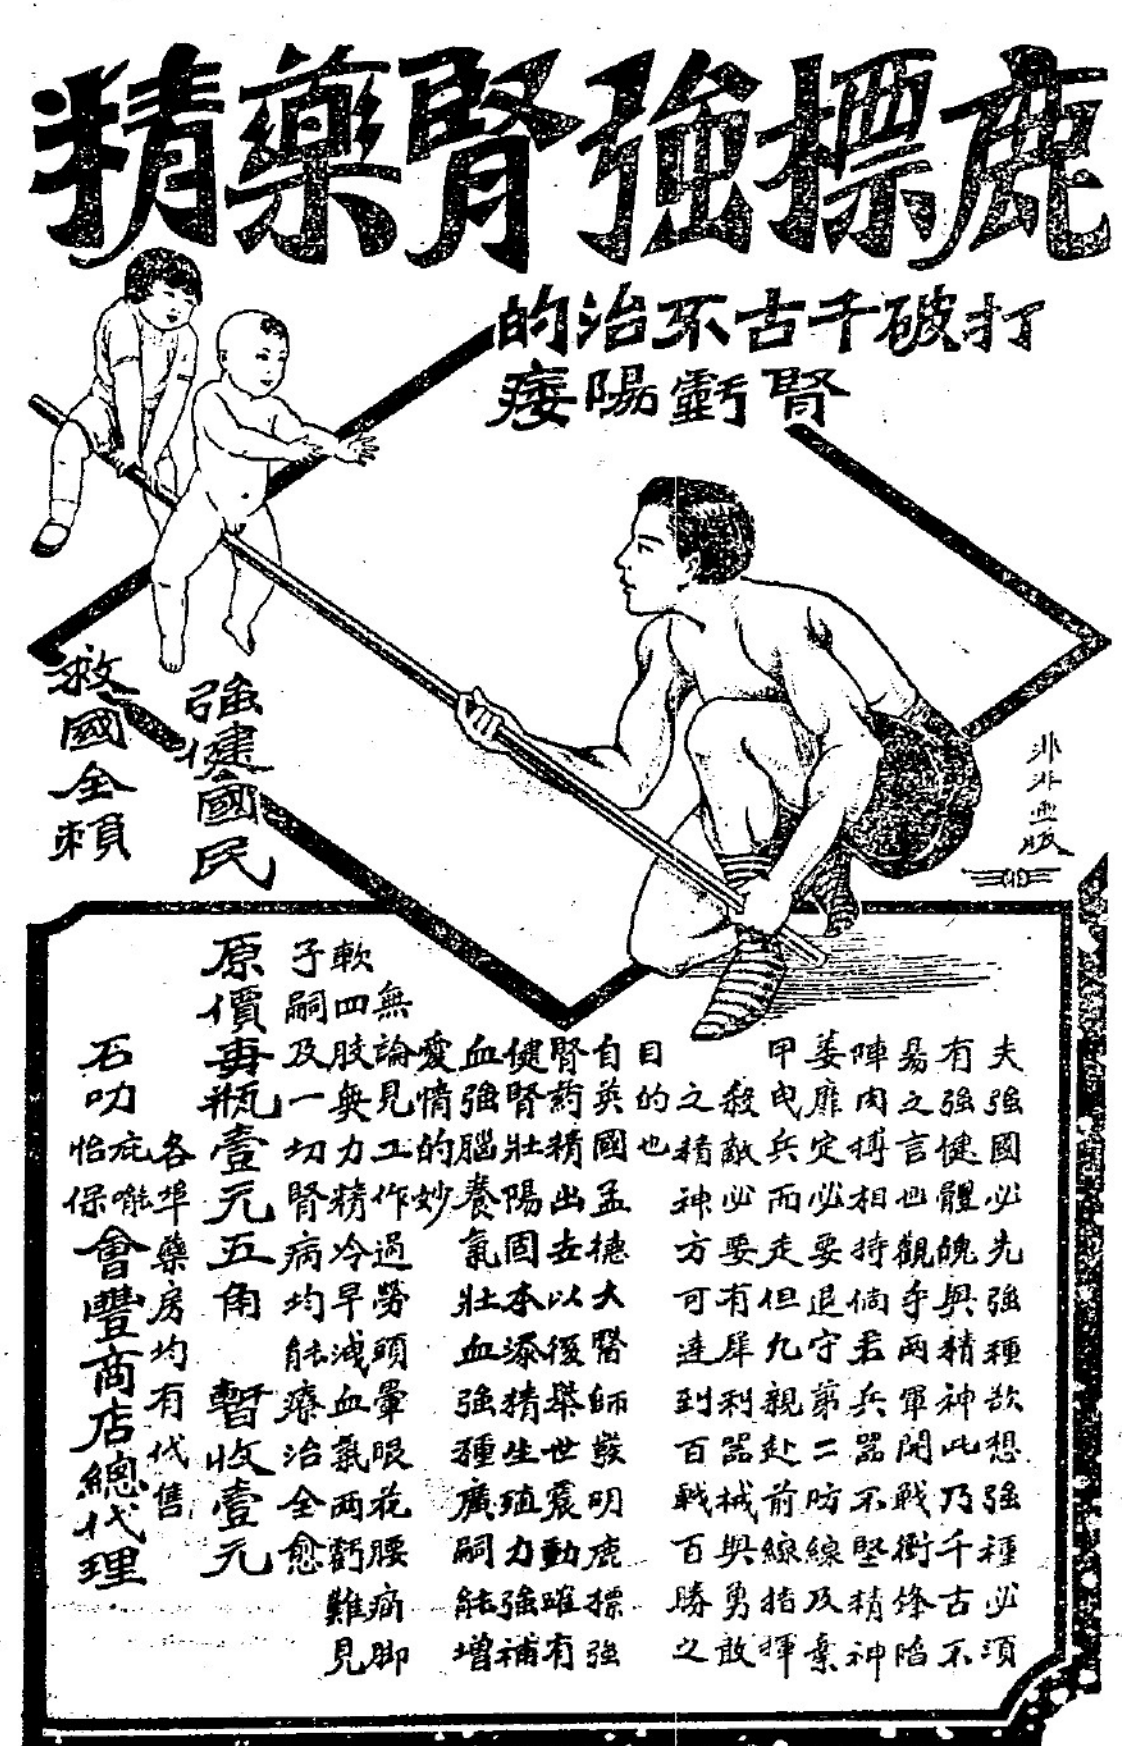 鹿標強腎藥精
打破千古不治的
腎虧陽痿
強健國民
救國全賴
非非畫版
夫強國必先強種欲想強種必須
有強健體魄與精神此乃千古不
易之言也觀乎兩軍開戰衝鋒陷
陣肉搏相持倘若兵器不堅精神
萎靡定必要退守第二防線及棄
甲曳兵而走但凡親赴前線指揮
殺敵必要有犀利器械與勇敢
之精神方可達到百戰百勝之
目的也
自英國孟德大醫師發明鹿標強
腎葯精出世以後舉世震動確有
健腎壯陽固本添精生殖力強補
血強腦養氣壯血強種廣嗣能增
愛情的妙
無論見工作過勞頭暈眼花腰痛脚
軟四肢無力精冷早洩血氣兩虧難見
子嗣及一切腎病均能療治全愈
原價每瓶壹元五角 暫收壹元
各埠藥房均有代售
石叻
庇能
怡保
會豐商店總代理